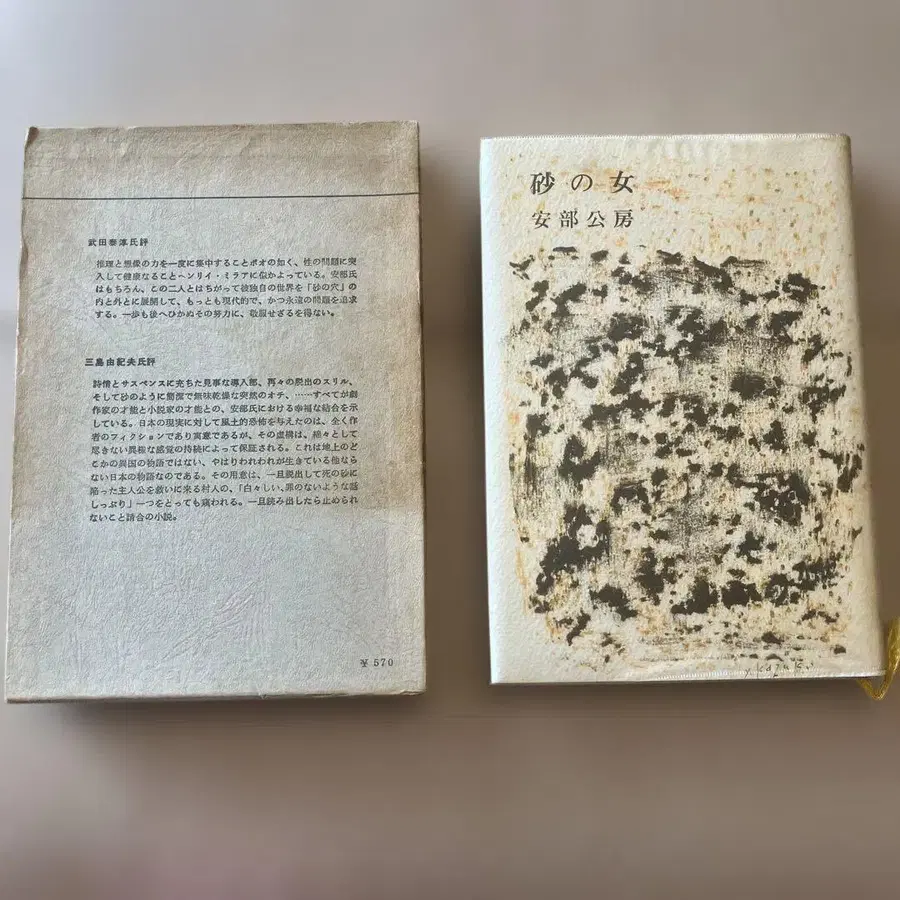 武田泰淳氏評
推理と想像の力を一度に集中することポオの如く、性の問題に突
入して健康なることヘンリイ・ミラアに似かよっている。安部氏
はもちろん、この二人とはちがって彼独自の世界を「砂の穴」の
内と外とに展開して、もっとも現代的で、かつ永遠の問題を追求
する。一歩も後へひかぬその努力に、敬服せざるを得ない。
三島由紀夫氏評
詩情とサスペンスに充ちた見事な導入部、再々の脱出のスリル、
そして砂のように簡潔で無味乾燥な突然のオチ、……すべてが劇
作家の才能と小説家の才能との、安部氏における幸福な結合を示
している。日本の現実に対して風土的恐怖を与えたのは、全く作
者のフィクションであり寓意であるが、その虚構は、綿々として
尽きない異様な感覚の持続によって保証される。これは地上のど
こかの異国の物語ではない、やはりわれわれが生きている他なら
ない日本の物語なのである。その用意は、一旦脱出して死の砂に
陥った主人公を救いに来る村人の、「白々しい、罪のないような話
しっぷり」一つをとっても窺われる。一旦読み出したら止められ
ないこと請合の小説。
¥ 570
砂の女
安部公房